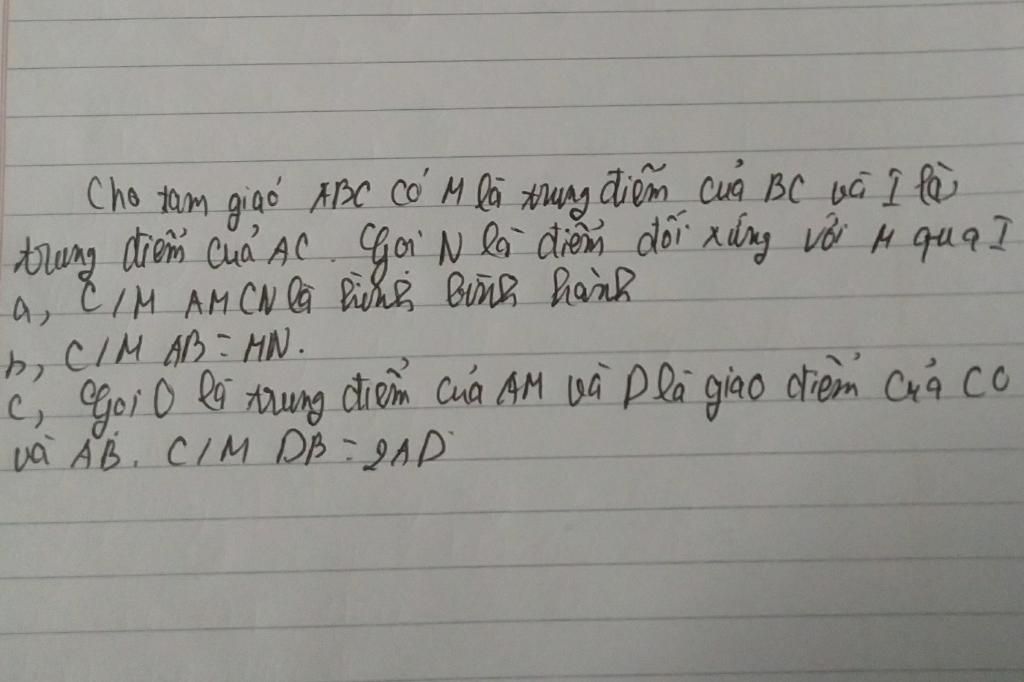 Cho tam giác ABC có M là trung điểm của BC và I là
trung điểm của AC. Gọi N là điểm đối xứng với M qua I
a, C/M AMCN là hình bình hành
b, C/M AB = MN.
c, Gọi O là trung điểm của AM và D là giao điểm của CO
và AB. C/M DB = 2AD